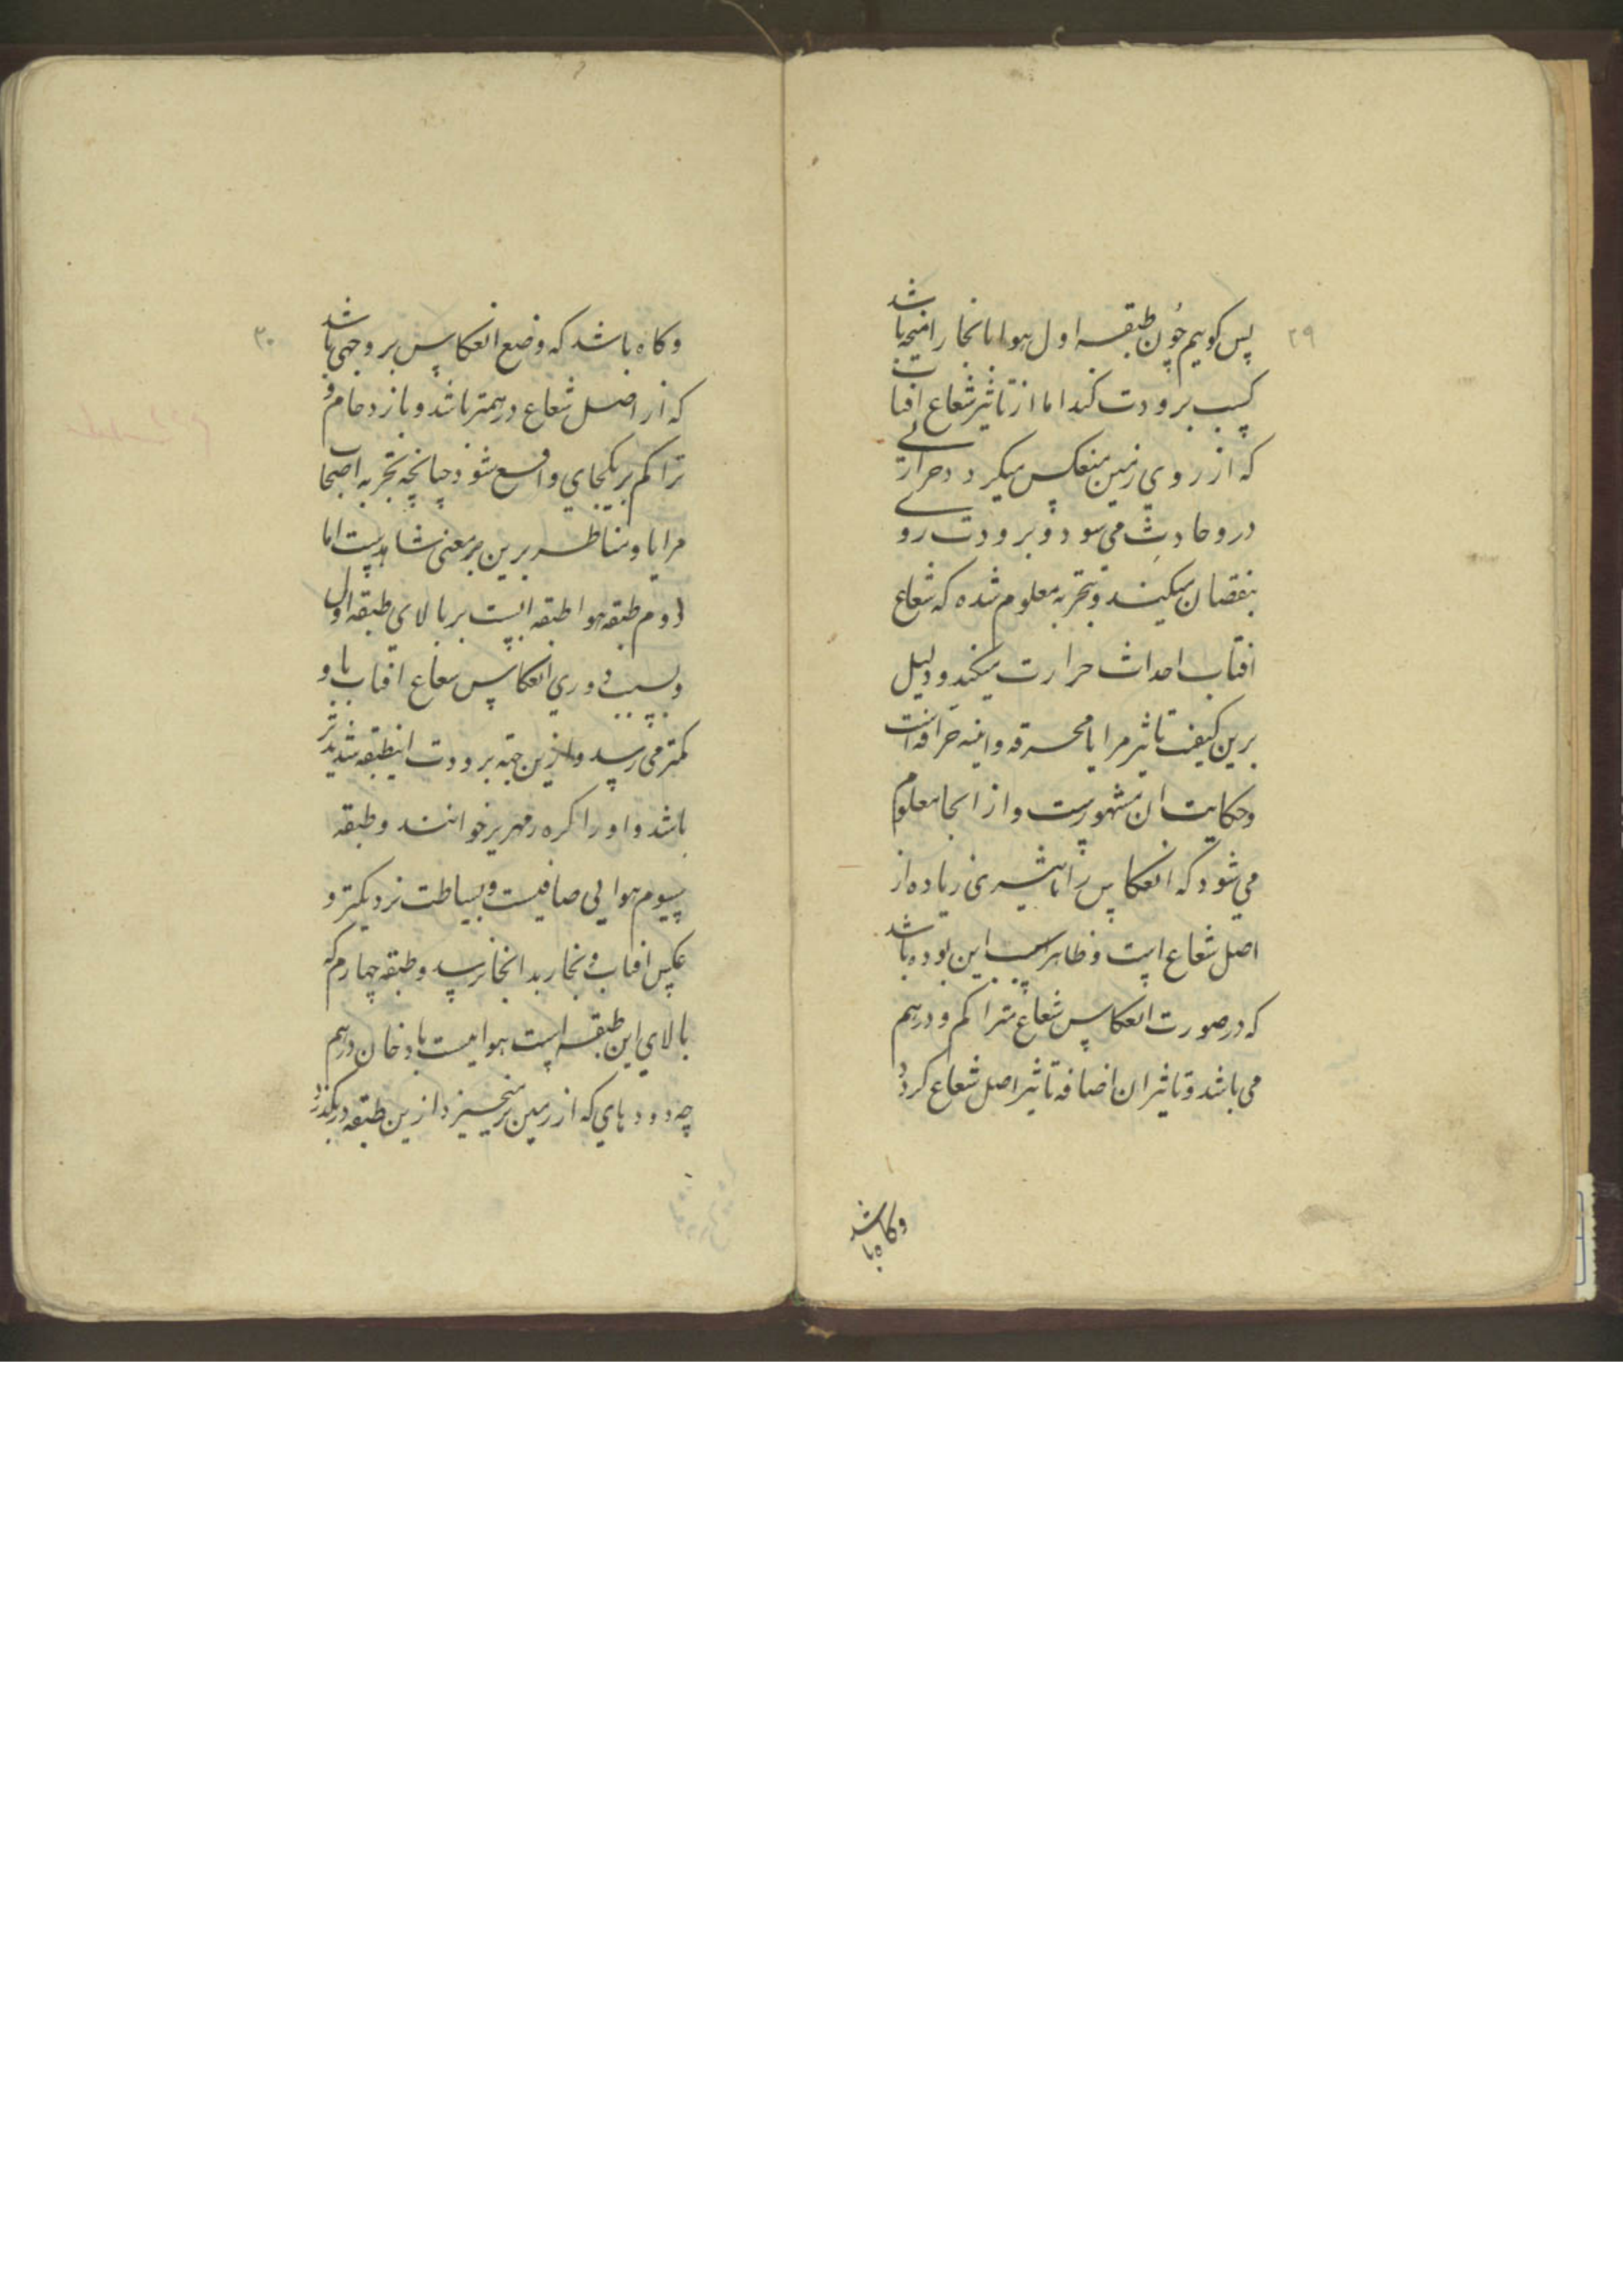 ۲۹
پس کوییم چون طبقه اول هوا با بخار امیخته باشد
کسب برودت کند اما از تاثیر شعاع افتاب
که از روی زمین منعکس میکردد حرارتی
درو حادث می سود و برودت رو
بنقصان میکند و بتجربه معلوم شده که شعاع
افتاب احداث حرارت میکند و دلیل
برین کیفیت تاثیر مرایا محرقه و اینه حراقه است
و حکایت ان مشهورست و از انجا معلوم
می شود که انعکاس را تاثیری زیاده از
اصل شعاع است و ظاهر سبب این بوده باشد
که در صورت انعکاس شعاع متراکم و درهم
می باشد و تاثیر ان اضافه تاثیر اصل شعاع کردد
وکاه باشد
۳۰
وکاه باشد که وضع انعکاس بر وجهی باشد
که از اصل شعاع درهمتر باشد و بازدحام و
تراکم بر یکجای واقع شود چنانچه تجربه اصحاب
مرایا و مناظر برین معنی شاهدست اما
دوم طبقه هوا طبقه ایست بر بالای طبقه اول
و بسبب دوری انعکاس شعاع افتاب باو
کمتر می رسد و ازین جهة برودت اینطبقه شدیدتر
باشد و او را کره زمهریر خوانند و طبقه
سیوم هوایی صافیست و ببساطت نزدیکتر و
عکس افتاب و بخار بدانجا نرسد و طبقه چهارم که
بالای این طبقه است هواییست با دخان درهم
چه دودهای که از زمین برمیخیزد ازین طبقه درنکذرد